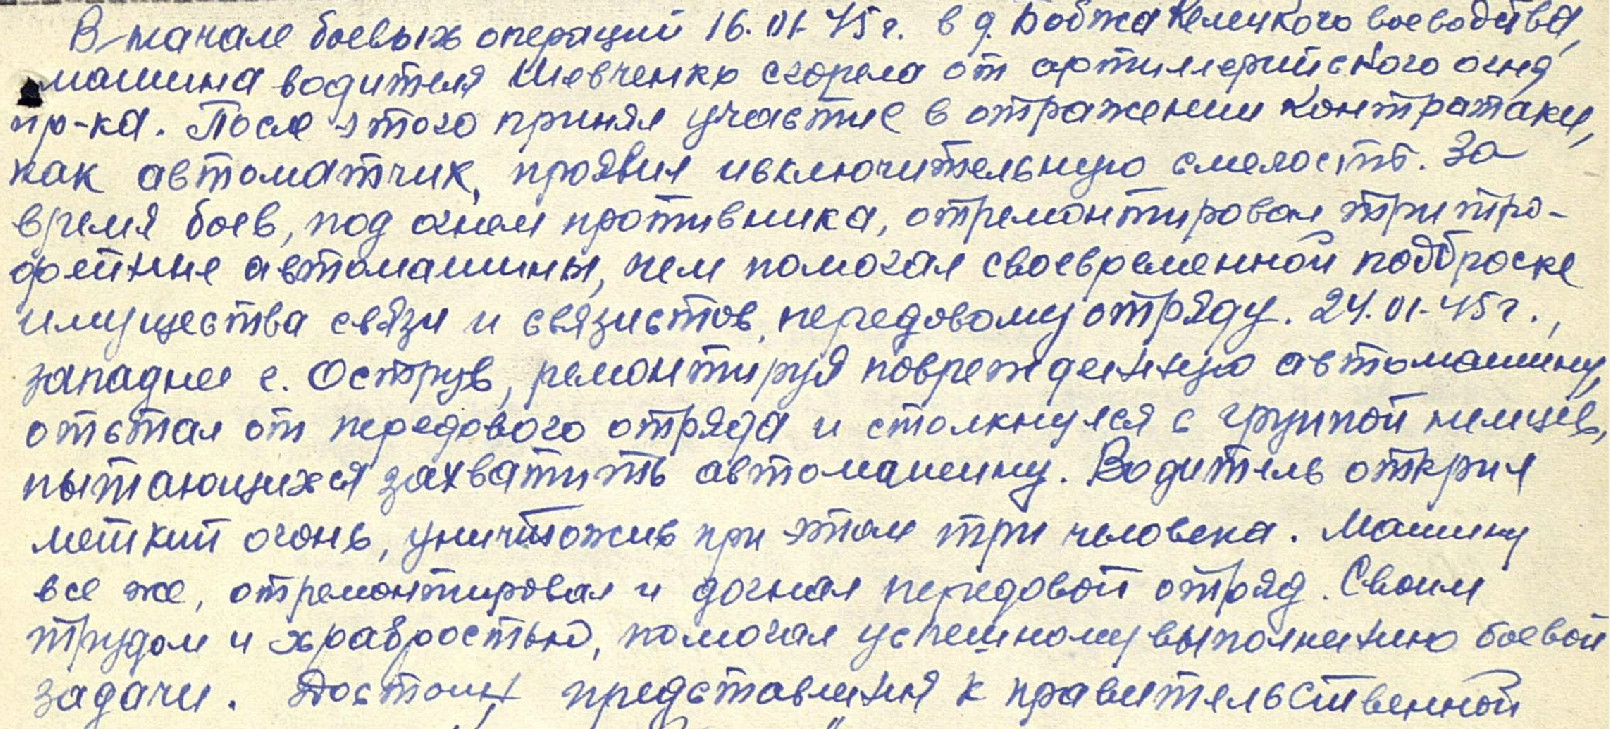 В начале боевых операций 16.01.45г. в д. Бобжа Келецкого воеводства,
машина водителя Шевченко сгорела от артиллерийского огня
пр-ка. После этого принял участие в отражении контратаки,
как автоматчик, проявил исключительную смелость. За
время боев, под огнем противника, отремонтировал три тро-
фейные автомашины, чем помогал своевременной подброске
имущества связи и связистов, передовому отряду. 24.01.45г.,
западнее с. Острув, ремонтируя поврежденную автомашину,
отстал от передового отряда и столкнулся с группой немцев,
пытающихся захватить автомашину. Водитель открыл
меткий огонь, уничтожив при этом три человека. Машину
все же, отремонтировал и догнал передовой отряд. Своим
трудом и храбростью, помогал успешному выполнению боевой
задачи. Достоин представления к правительственной